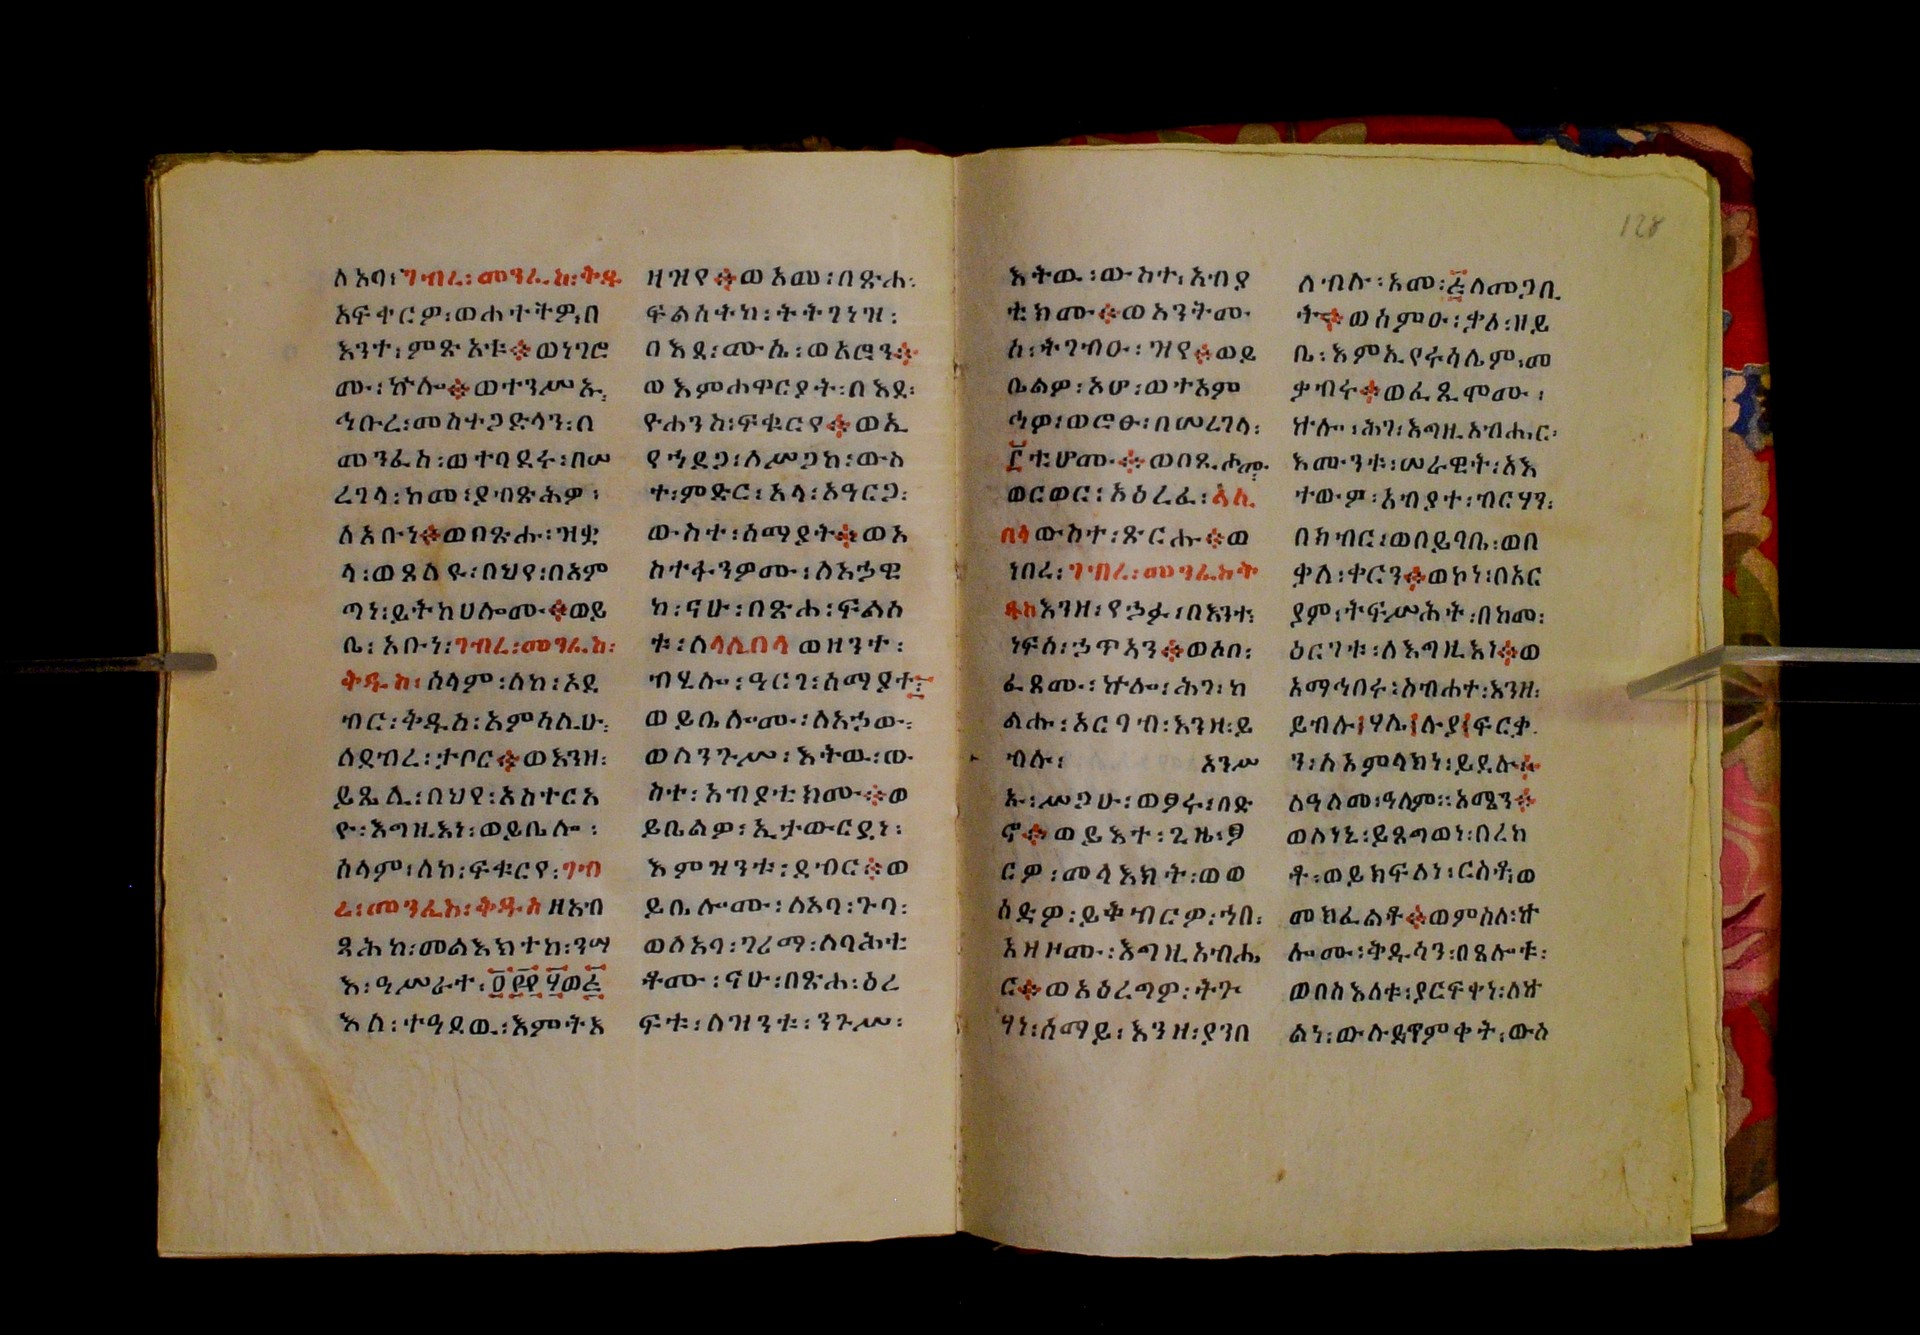 ለአባ፡ገብረ፡መንፈስ፡ቅዱ
አፍቀርዎ፡ወሐተትዎ፡በ
እንተ፡ምጽአቱ፨ወነገሮ
ሙ፡ኵሎ፨ወተንሥኡ፡
ኅቡረ፡መስተጋድላን፡በ
መንፈስ፡ወተባደሩ፡በሠ
ረገላ፡ከመ፡ያብጽሕዎ፡
ለአቡነ፨ወበጽሑ፡ዝቋ
ላ፡ወጸለዩ፡በህየ፡በአም
ጣነ፡ይትከሀሎሙ፨ወይ
ቤ፡አቡነ፡ገብረ፡መንፈስ፡
ቅዱስ፡ሰላም፡ለከ፡ኦደ
ብር፡ቅዱስ፡አምሳሊሁ፡
ለደብረ፡ታቦር፨ወእንዘ፡
ይጼሊ፡በህየ፡አስተርአ
ዮ፡እግዚእነ፡ወይቤሎ፡
ሰላም፡ለከ፡ፍቁርየ፡ገብ
ረ፡መንፈስ፡ቅዱስ፡ዘአብ
ጻሕከ፡መልእክተከ፡ንሣ
እ፡ዓሥራተ፡፼፻፶፯ወ፩
እለ፡ተዓደዉ፡እምትእ
ዘዝየ፨ወአመ፡በጽሐ፡
ፍልሰትከ፡ትትገነዝ፡
በእደ፡ሙሴ፡ወአሮን፨
ወእምሐዋርያት፡በእደ፡
ዮሐንስ፡ፍቁርየ፨ወኢ
የኀደጋ፡ለሥጋከ፡ውስ
ተ፡ምድር፡አላ፡አዓርጋ፡
ውስተ፡ሰማያት፨ወአ
ስተፋንዎሙ፡ለአኃዊ
ከ፡ናሁ፡በጽሐ፡ፍልሰ
ቱ፡ለላሊበላ፡ወዘንተ፡
ብሂሎ፡ዓርገ፡ሰማያተ፡
ወይቤሎሙ፡ለአኃው፡
ወለንጉሥ፡እትዉ፡ው
ስተ፡አብያቲክሙ፨ወ
ይቤልዎ፡ኢታውርደነ፡
እምዝንቱ፡ደብር፨ወ
ይቤሎሙ፡ለአባ፡ጉባ፡
ወለአባ፡ገሪማ፡ለባሕቲ
ቶሙ፡ናሁ፡በጽሐ፡ዕረ
ፍቱ፡ለዝንቱ፡ንጉሥ፡
እትዉ፡ውስተ፡አብያ
ቲክሙ፨ወአንትሙ
ሰ፡ትገብዑ፡ዝየ፨ወይ
ቤልዎ፡እሆ፡ወተአም
ኅዎ፡ወሮፁ፡በሠረገላ፡
፫ቲሆሙ፨ወበጺሖሙ፡
ወርወር፡አዕረፈ፡ላሊ
በላ፡ውስተ፡ጽርሑ፨ወ
ነበረ፡ገብረ፡መንፈስ፡ቅ
ዱስ፡እንዘ፡የኃፊ፡በእንተ፡
ነፍሰ፡ኃጥኣን፨ወአበ፡
ፈጸሙ፡ኵሎ፡ሕገ፡ከ
ልሑ፡አርባብ፡እንዘ፡ይ
ብሉ፡ እንሥ
ኡ፡ሥጋሁ፡ወፃሩ፡በድ
ኖ፨ወይእተ፡ጊዜ፡ፃ
ርዎ፡መላእክት፡ወወ
ሰድዎ፡ይቅብርዎ፡ኀበ፡
አዘዞሙ፡እግዚአብሔ
ር፨ወአዕረጣዎ፡ትጉ
ሃነ፡ሰማይ፡እንዘ፡ያንበ
ለብሉ፡አመ፡፭ለመጋቢ
ት፨ወሰምዑ፡ቃለ፡ዘይ
ቤ፡እምኢየሩሳሌም፡መ
ቃብሩ፨ወፈጺሞሙ፡
ኵሎ፡ሕገ፡እግዚአብሔር፡
እሙንቱ፡ሠራዊት፡አእ
ተውዎ፡አብያተ፡ብርሃን፡
በክብር፡ወበይባቤ፡ወበ
ቃለ፡ቀርን፨ወኮነ፡በአር
ያም፡ትፍሥሕት፡በከመ፡
ዕርገቱ፡ለእግዚእነ፨ወ
አማኅበሩ፡ስብሐተ፡እንዘ፡
ይብሉ፡ሃሌ፡ሉያ፡ፍርቃ
ን፡ለአምላክነ፡ይደሉ፨
ለዓለመ፡ዓለም፡፡አሜን፨
ወለነኒ፡ይጸግወነ፡በረከ
ቶ፡ወይክፍለነ፡ርስቶ፡ወ
መክፈልቶ፨ወምስለ፡ኵ
ሎሙ፡ቅዱሳን፡በጸሎቱ፡
ወበስእለቱ፡ያርፍቀነ፡ለኵ
ልነ፡ውሉደ፡ጥምቀት፡ውስ